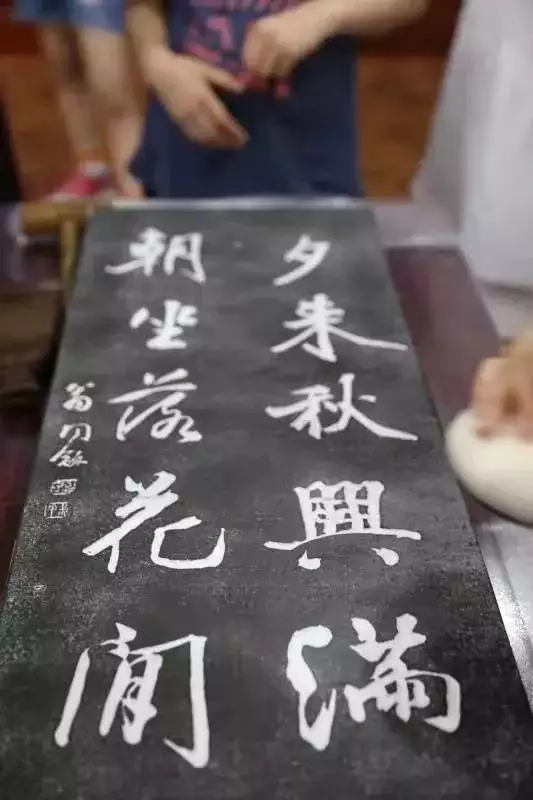 夕来秋興滿
朝坐落花間
翁同龢